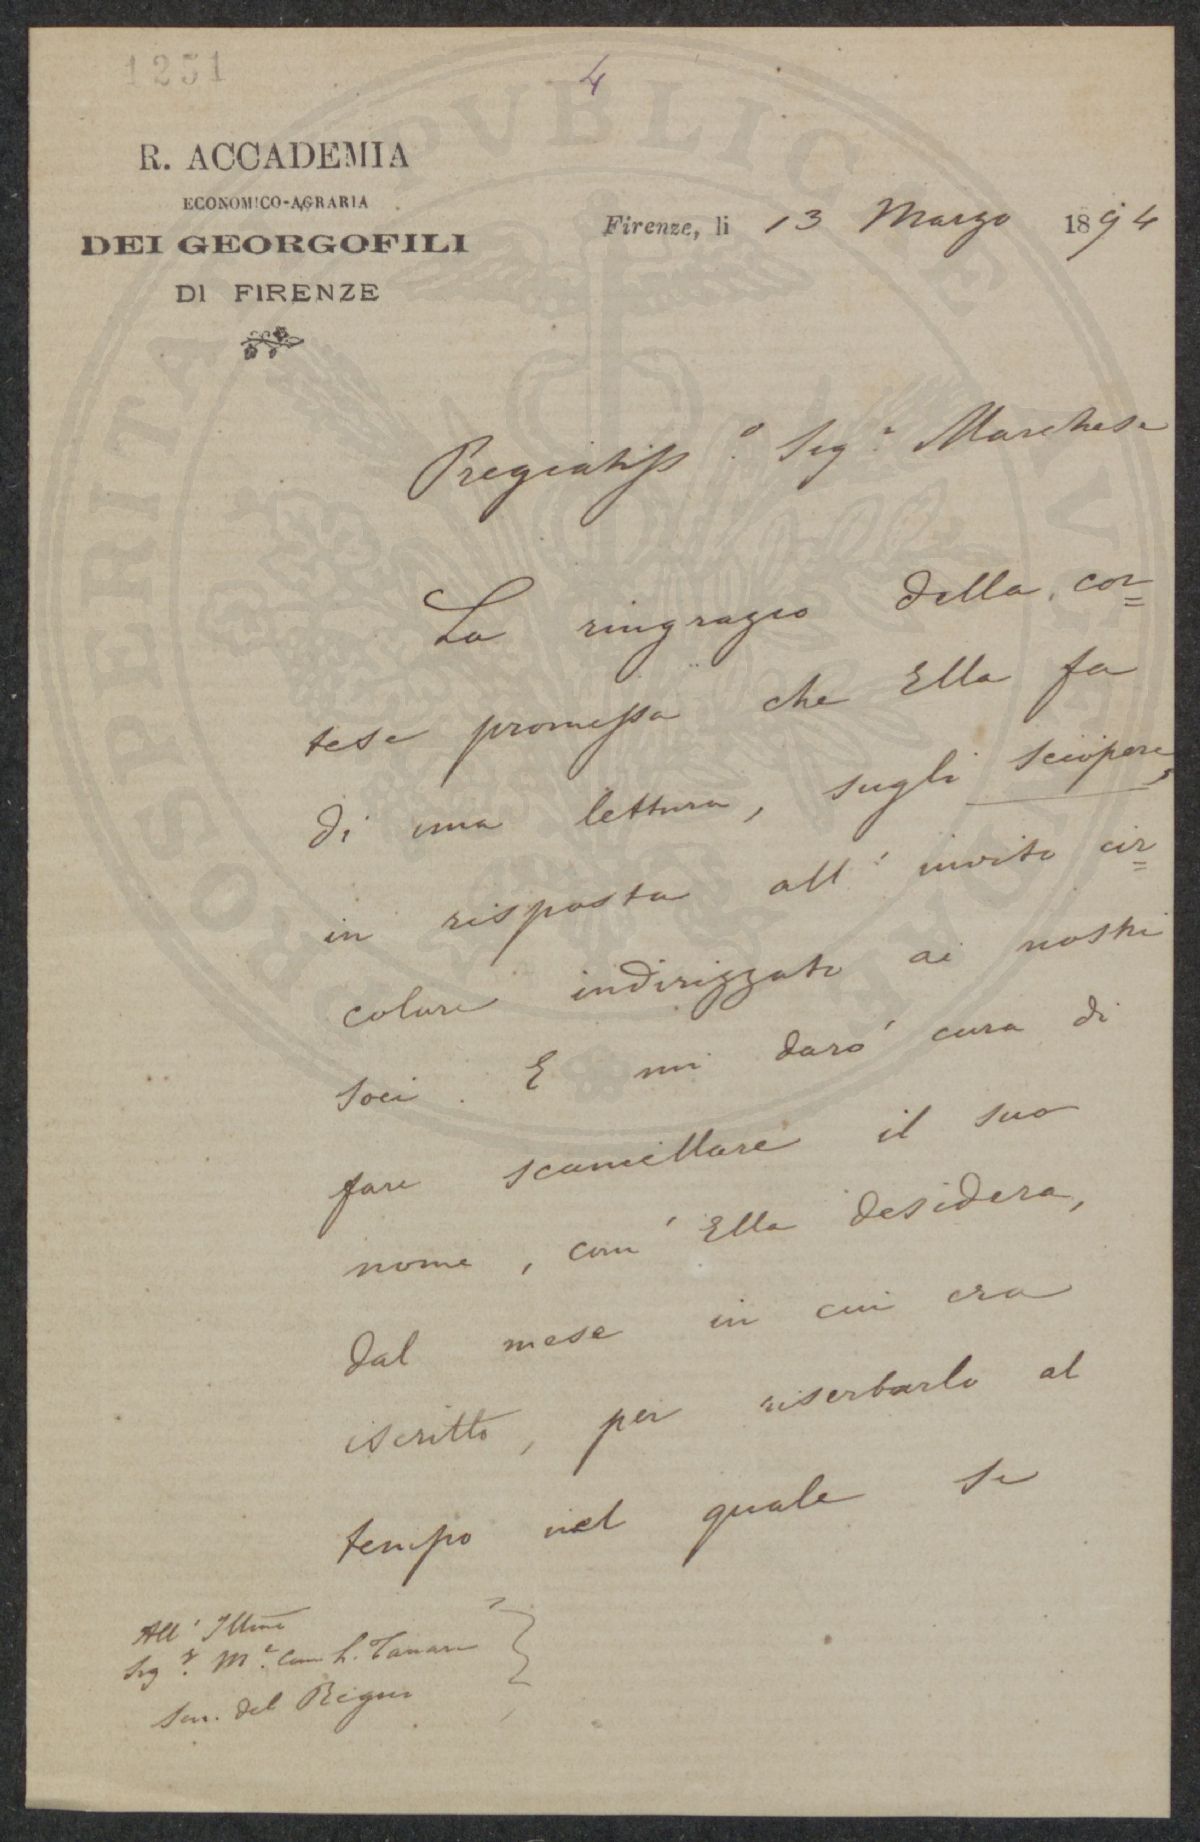 1251
4
R. ACCADEMIA
ECONOMICO-AGRARIA
DEI GEORGOFILI
DI FIRENZE
Firenze, li 13 Marzo 1894
PROSPERITATI PUBLICAE AUGENDAE
Pregiatiss.º Sig.r Marchese
La ringrazio della cor=
tese promessa che Ella fa
di una lettura, sugli scioperi,
in risposta all'invito cir=
colare indirizzato ai nostri
soci. E mi darò cura di
fare scancellare il suo
nome, com'Ella desidera,
dal mese in cui era
iscritto, per riserbarlo al
tempo nel quale se
All'Illmo
Sig.r M.e Com L. Tanari
Sen. del Regno